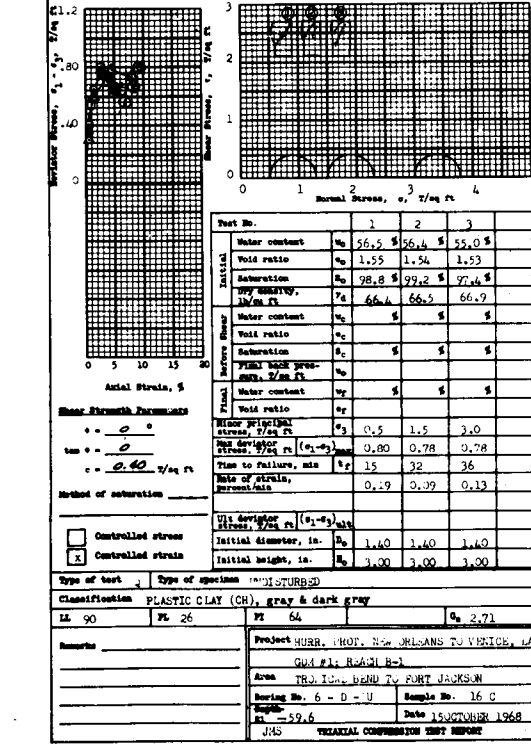 1.2
.80
.40
0
Deviator Stress, σ1 - σ3, T/sq ft
0 5 10 15 20
Axial Strain, %
3
2
1
0
Shear Stress, τ, T/sq ft
0 1 2 3 4
Normal Stress, σ, T/sq ft
Shear Strength Parameters
φ = 0 °
tan φ = 0
c = 0.40 T/sq ft
Method of saturation
Controlled stress
x Controlled strain
Test No. 1 2 3
Initial
Water content wo 56.5 % 56.4 % 55.0 %
Void ratio eo 1.55 1.54 1.53
Saturation So 98.8 % 99.2 % 97.4 %
Dry density, lb/cu ft γd 66.4 66.5 66.9
Before Shear
Water content wc % % %
Void ratio ec
Saturation Sc % % %
Final back pressure, T/sq ft uo
Final
Water content wf % % %
Void ratio ef
Minor principal stress, T/sq ft σ3 0.5 1.5 3.0
Max deviator stress, T/sq ft (σ1-σ3)max 0.80 0.78 0.78
Time to failure, min tf 15 32 36
Rate of strain, percent/min 0.19 0.09 0.13
Ult deviator stress, T/sq ft (σ1-σ3)ult
Initial diameter, in. Do 1.40 1.40 1.40
Initial height, in. Ho 3.00 3.00 3.00
Type of test Type of specimen UNDISTURBED
Classification PLASTIC CLAY (CH), gray & dark gray
LL 90 PL 26 PI 64 Gs 2.71
Remarks
Project HURR. PROT. NEW ORLEANS TO VENICE, LA
GDM #1; REACH B-1
Area TROPICAL BEND TO FORT JACKSON
Boring No. 6 - D - U Sample No. 16 C
Depth El -59.6 Date 15 OCTOBER 1968
JMS TRIAXIAL COMPRESSION TEST REPORT